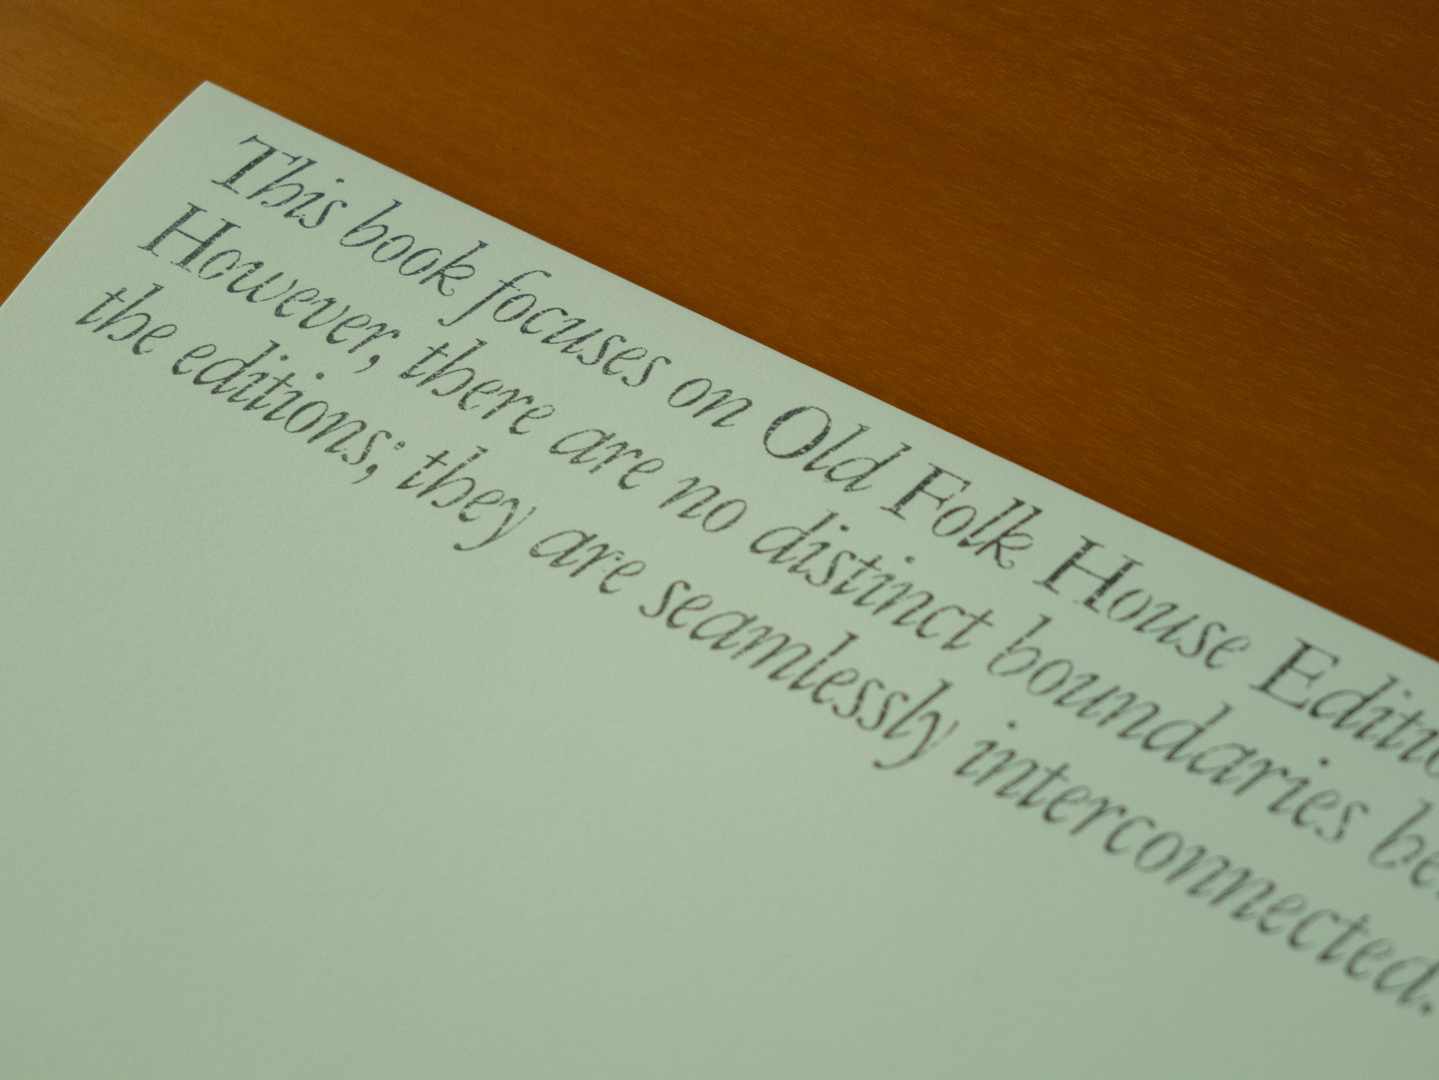 This book focuses on Old Folk House
However, there are no distinct boundaries
the editions; they are seamlessly interconnected.